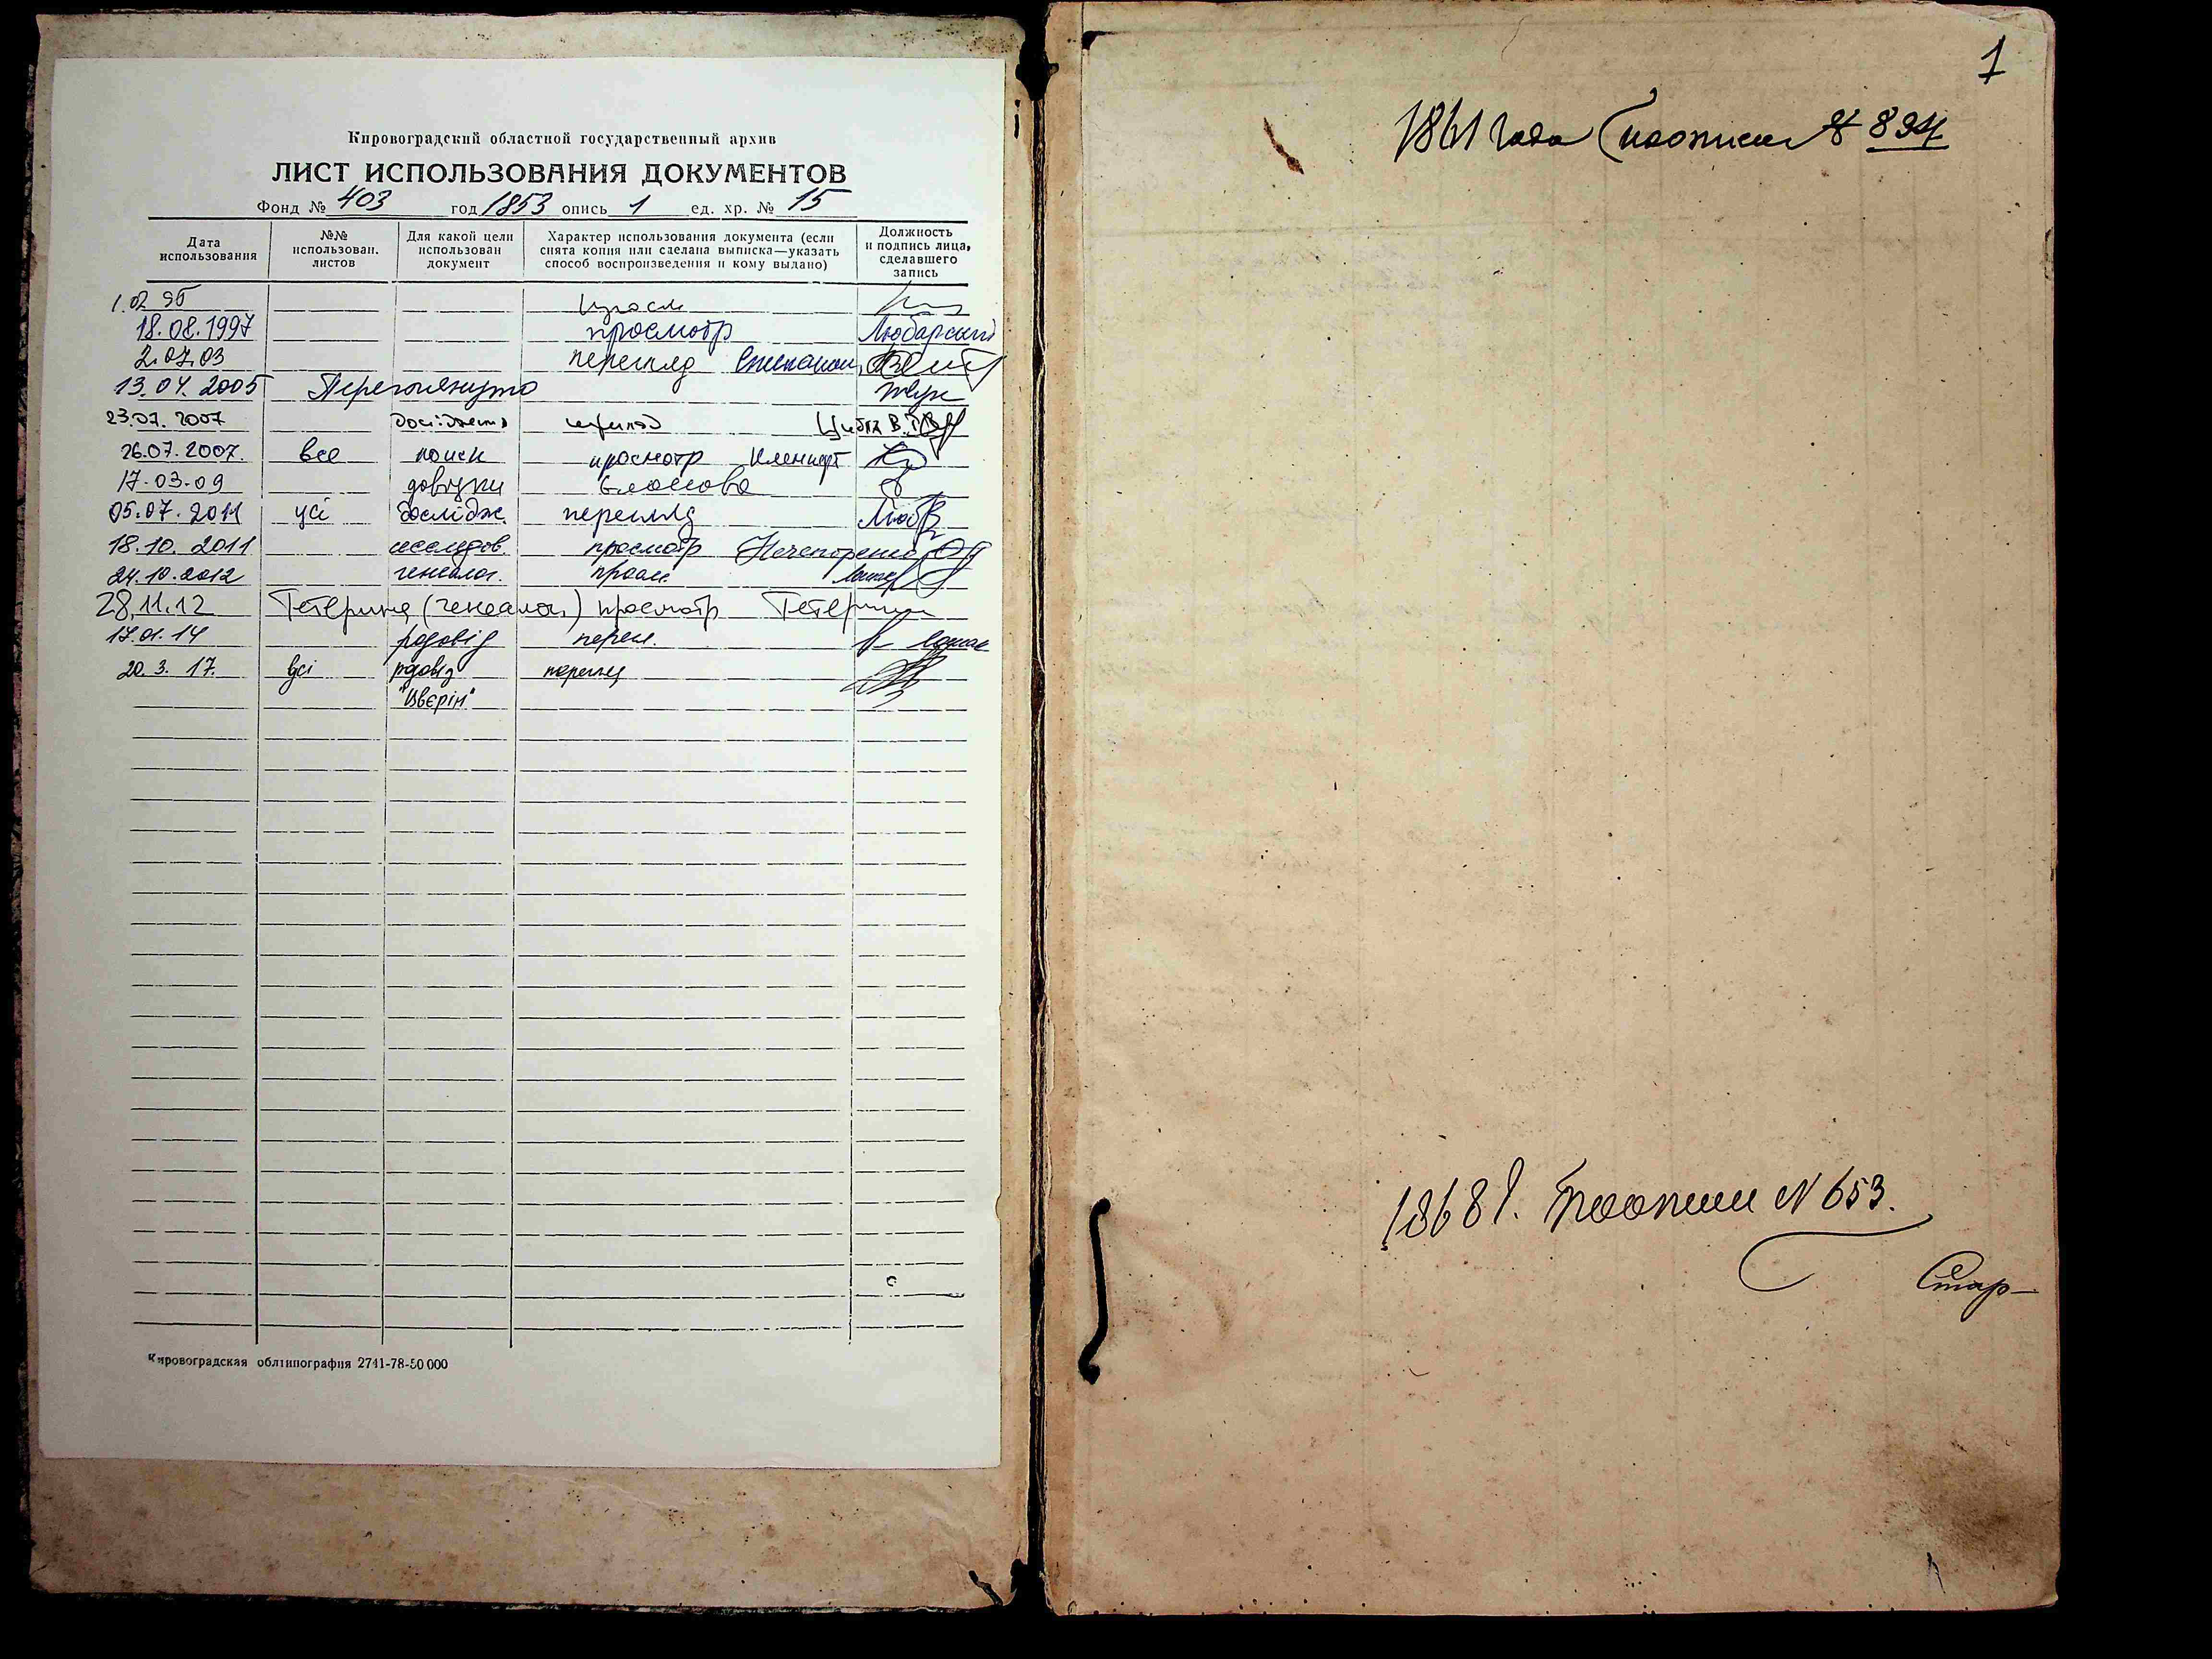 Кировоградский областной государственный архив
ЛИСТ ИСПОЛЬЗОВАНИЯ ДОКУМЕНТОВ
Фонд № 403 год 1853 опись 1 ед. хр. № 15
Дата использования
№№ использован. листов
Для какой цели использован документ
Характер использования документа (если снята копия или сделана выписка—указать способ воспроизведения и кому выдано)
Должность и подпись лица, сделавшего запись
1.02.95
18.08.1997 просмотр Любарский
2.07.03 перегляд
13.04.2005 Переглянуто Жук
23.07.2007
26.07.2007. все поиск просмотр
17.03.09 довідки
05.07.2011 усі дослідж. перегляд
18.10.2011 исследов. просмотр Нечепоренко
24.10.2012 генеалог. просм
28.11.12 Тетерина (генеалог.) просмотр
17.01.14 родовід перегл.
20.3.17. всі родовід перегляд
"Цвєрін"
Кировоградская облтипография 2741-78-50 000
1
1861 года № 894
1868 г. по описи № 653.